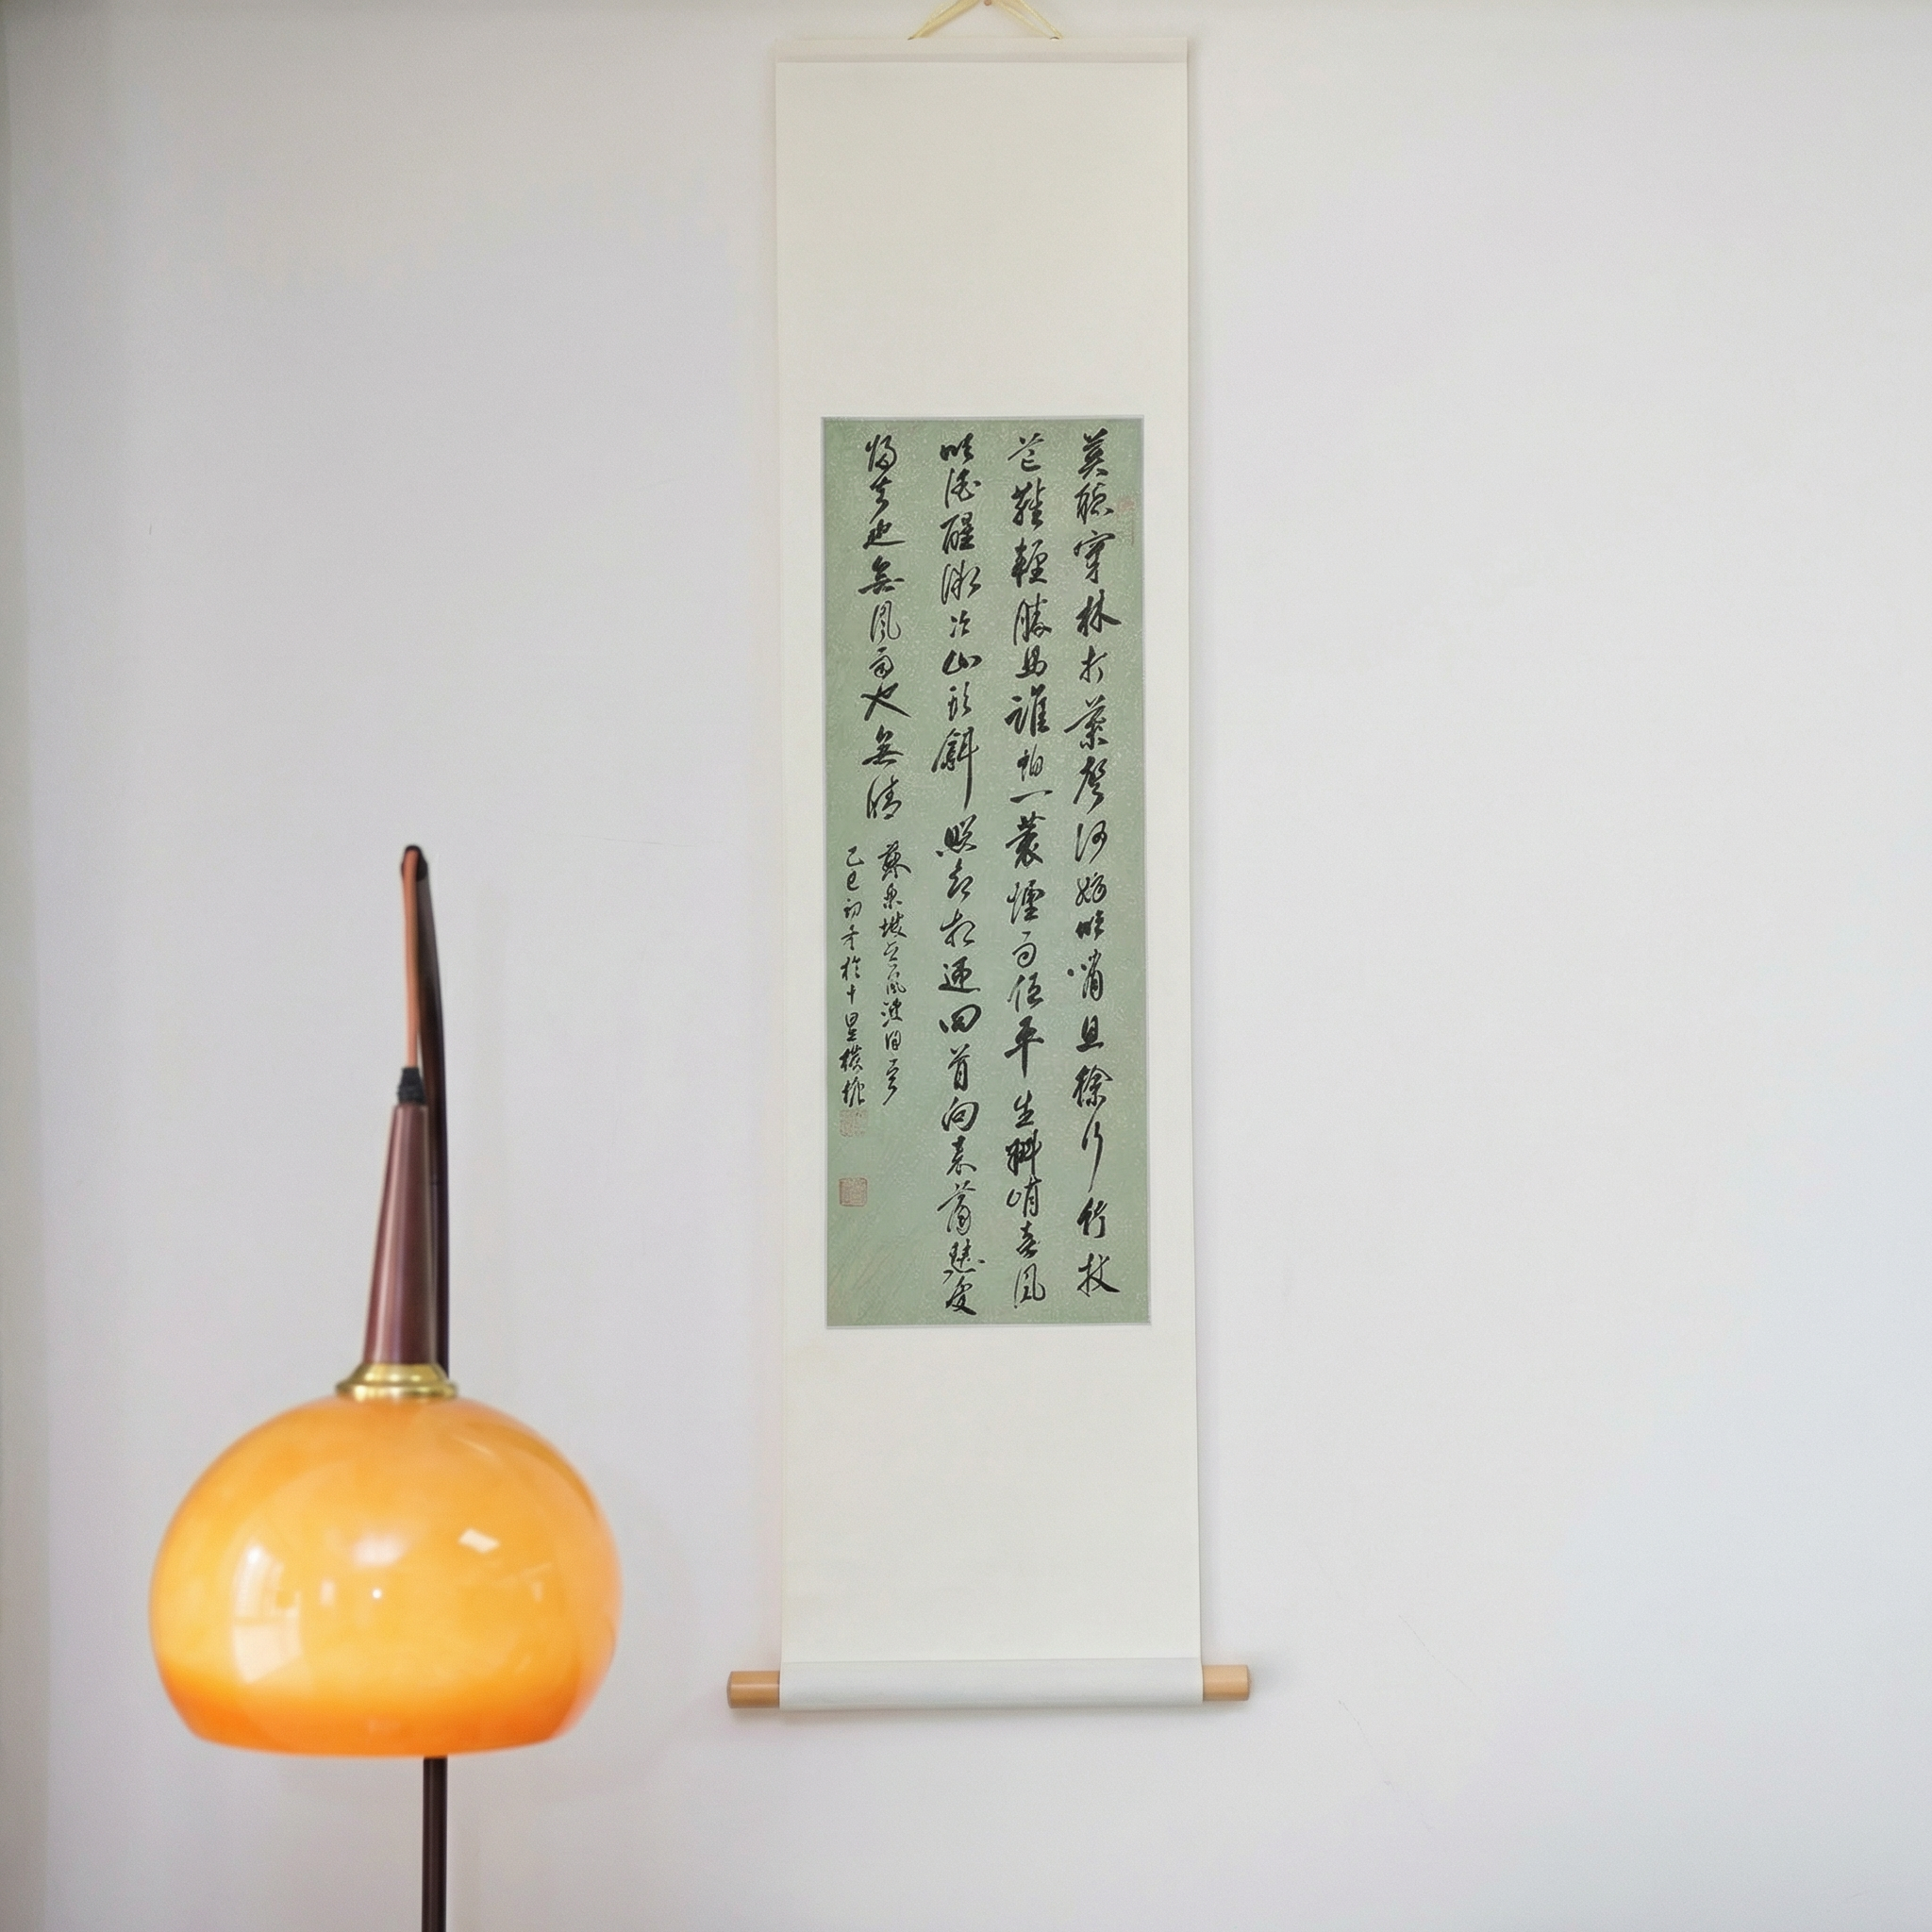 莫聽穿林打葉聲何妨吟嘯且徐行竹杖
芒鞋輕勝馬誰怕一蓑煙雨任平生料峭春風
吹酒醒微冷山頭斜照卻相迎回首向來蕭瑟處
歸去也無風雨也無晴
蘇東坡定風波
乙巳初冬於十里